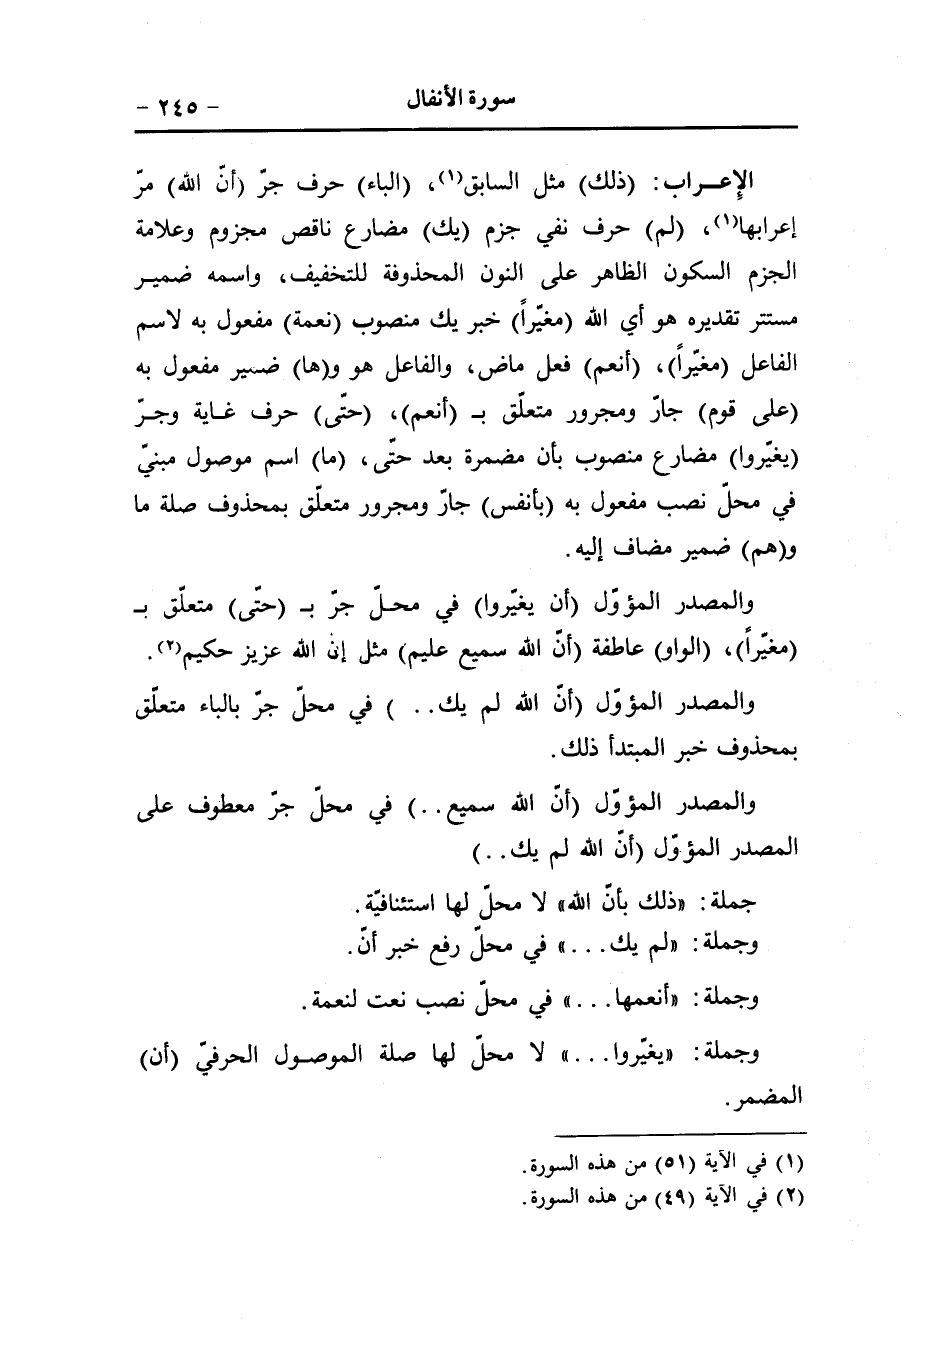 سورة الأنفال
- ٢٤٥ -
الإعـراب: (ذلك) مثل السابق(١)، (الباء) حرف جرّ (أنّ الله) مرّ
إعرابها(١)، (لم) حرف نفي جزم (يك) مضارع ناقص مجزوم وعلامة
الجزم السكون الظاهر على النون المحذوفة للتخفيف، واسمه ضمير
مستتر تقديره هو أي الله (مغيّراً) خبر يك منصوب (نعمة) مفعول به لاسم
الفاعل (مغيّراً)، (أنعم) فعل ماض، والفاعل هو و(ها) ضمير مفعول به
(على قوم) جارّ ومجرور متعلّق بـ (أنعم)، (حتّى) حرف غـاية وجـرّ
(يغيّروا) مضارع منصوب بأن مضمرة بعد حتّى، (ما) اسم موصول مبنيّ
في محلّ نصب مفعول به (بأنفس) جارّ ومجرور متعلّق بمحذوف صلة ما
و(هم) ضمير مضاف إليه.
والمصدر المؤوّل (أن يغيّروا) في محـلّ جرّ بـ (حتّى) متعلّق بـ
(مغيّراً)، (الواو) عاطفة (أنّ الله سميع عليم) مثل إنّ الله عزيز حكيم(٢).
والمصدر المؤوّل (أنّ الله لم يك.. ) في محلّ جرّ بالباء متعلّق
بمحذوف خبر المبتدأ ذلك.
والمصدر المؤوّل (أنّ الله سميع..) في محلّ جرّ معطوف على
المصدر المؤوّل (أنّ الله لم يك..)
جملة: «ذلك بأنّ الله» لا محلّ لها استئنافيّة.
وجملة: «لم يك...» في محلّ رفع خبر أنّ.
وجملة: «أنعمها...» في محلّ نصب نعت لنعمة.
وجملة: «يغيّروا...» لا محلّ لها صلة الموصول الحرفيّ (أن)
المضمر.
(١) في الآية (٥١) من هذه السورة.
(٢) في الآية (٤٩) من هذه السورة.